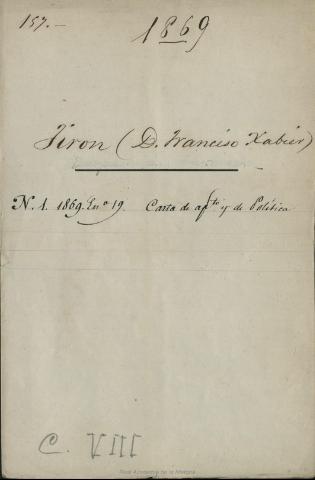 157.-
1869
Firon (D. Francisco Xabier)
N. 1. 1869. En.º 19. Carta de af.to y de Política
C. VIII
Real Academia de la Historia